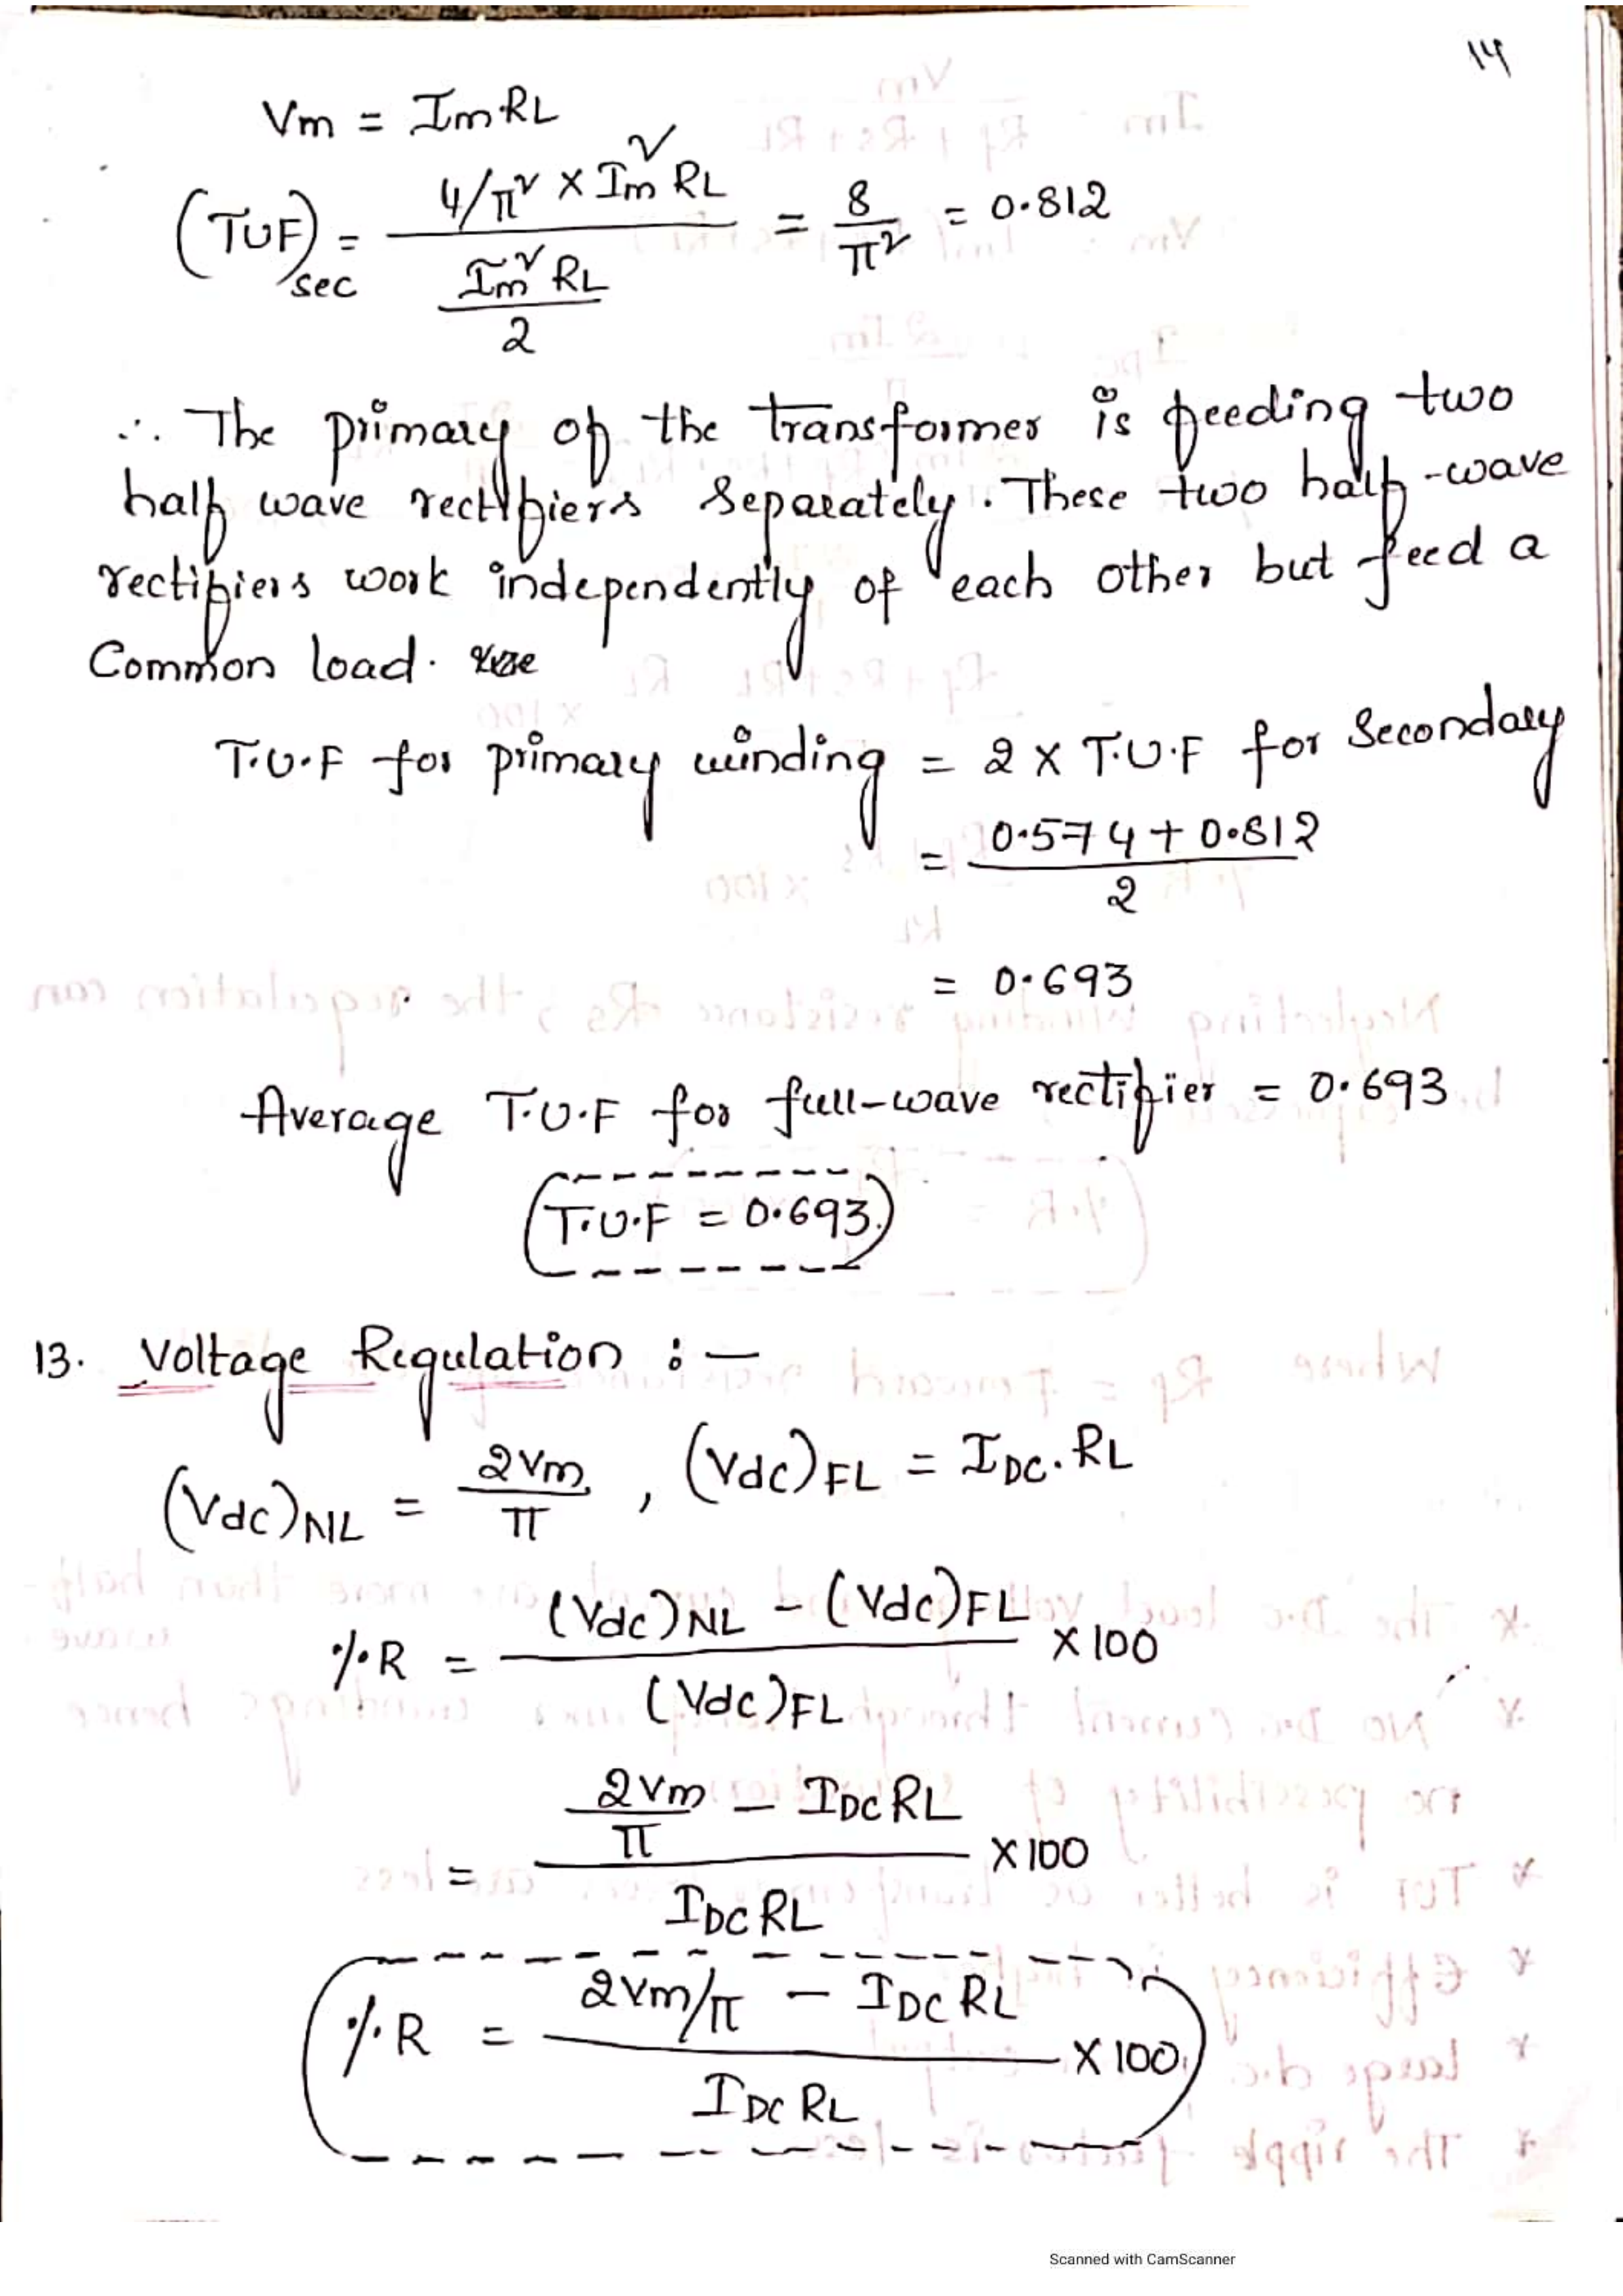 14
Vm = Im RL
(TUF)sec = (4/π² × Im² RL) / (Im² RL / 2) = 8/π² = 0.812
∴ The primary of the transformer is feeding two
half wave rectifiers separately. These two half-wave
rectifiers work independently of each other but feed a
Common load.
T.U.F for primary winding = 2 × T.U.F for Secondary
= (0.574 + 0.812) / 2
= 0.693
Average T.U.F for full-wave rectifier = 0.693
T.U.F = 0.693
13. Voltage Regulation :-
(Vdc)NL = 2Vm/π , (Vdc)FL = IDC. RL
%R = ((Vdc)NL - (Vdc)FL) / (Vdc)FL × 100
= (2Vm/π - IDC RL) / (IDC RL) × 100
%R = (2Vm/π - IDC RL) / (IDC RL) × 100
Scanned with CamScanner